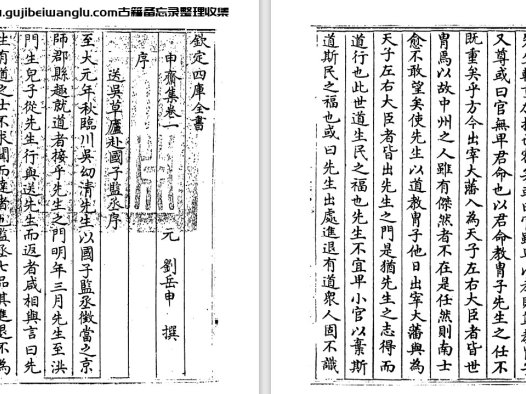 .gujibeiwanglu.com古籍备忘录整理收集
欽定四庫全書
申齋集卷一
元 劉岳申 撰
序
送吳草廬赴國子監丞序
至大元年秋臨川吳幼清先生以國子監丞徵當之京
師郡縣趣就道者接乎先生之門明年三月先生至洪
門生兒子從先生行與送先生而返者咸相與言曰先
生有道之士不求聞而達者也監丞七品其進退不為
又尊或曰官無卑君命也以君命教胄子先生之任不
既重矣乎方今出宰大藩入為天子左右大臣者皆世
胄焉以故中州之人雖有傑然者不在是任然則南士
愈不敢望矣使先生以道教胄子他日出宰大藩與為
天子左右大臣者皆出先生之門是猶先生之志得而
道行也此世道生民之福也先生不宜卑小官以棄斯
道斯民之福也或曰先生出處進退有道衆人固不識